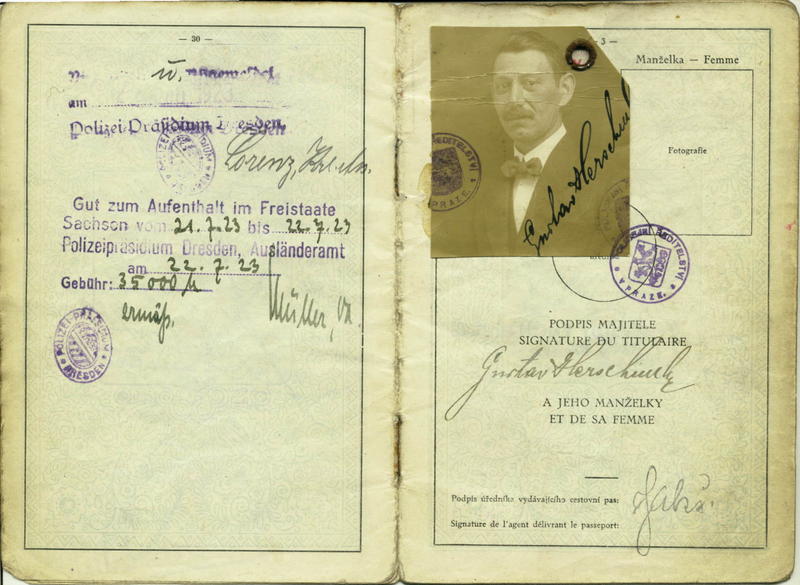 — 30 —
u. abgemeldet
am
Polizei-Präsidium Dresden.
POLIZEI-PRÄSIDIUM
Lorenz,
Gut zum Aufenthalt im Freistaate
Sachsen vom 21.7.23 bis 22.7.23
Polizeipräsidium Dresden, Ausländeramt
am 22.7.23
Gebühr: 35000 M
ermäß.
Müller,
POLIZEI-PRÄSIDIUM DRESDEN
— 3 —
Manželka — Femme
Fotografie
ŘEDITELSTVÍ
PRAZE.
Gustav
POLICEJNÍ ŘEDITELSTVÍ
V PRAZE.
PODPIS MAJITELE
SIGNATURE DU TITULAIRE
Gustav
A JEHO MANŽELKY
ET DE SA FEMME
Podpis úředníka vydávajícího cestovní pas:
Signature de l'agent délivrant le passeport: